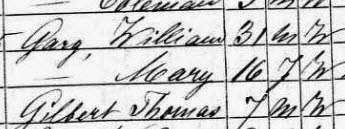 Coleman 3 m W
Gary, William 31 m W
— Mary 16 7 W
Gilbert Thomas 7 m W